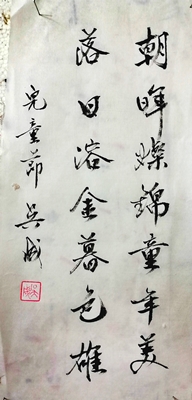 朝晖灿锦童年美
落日溶金暮色雄
儿童节 吴成